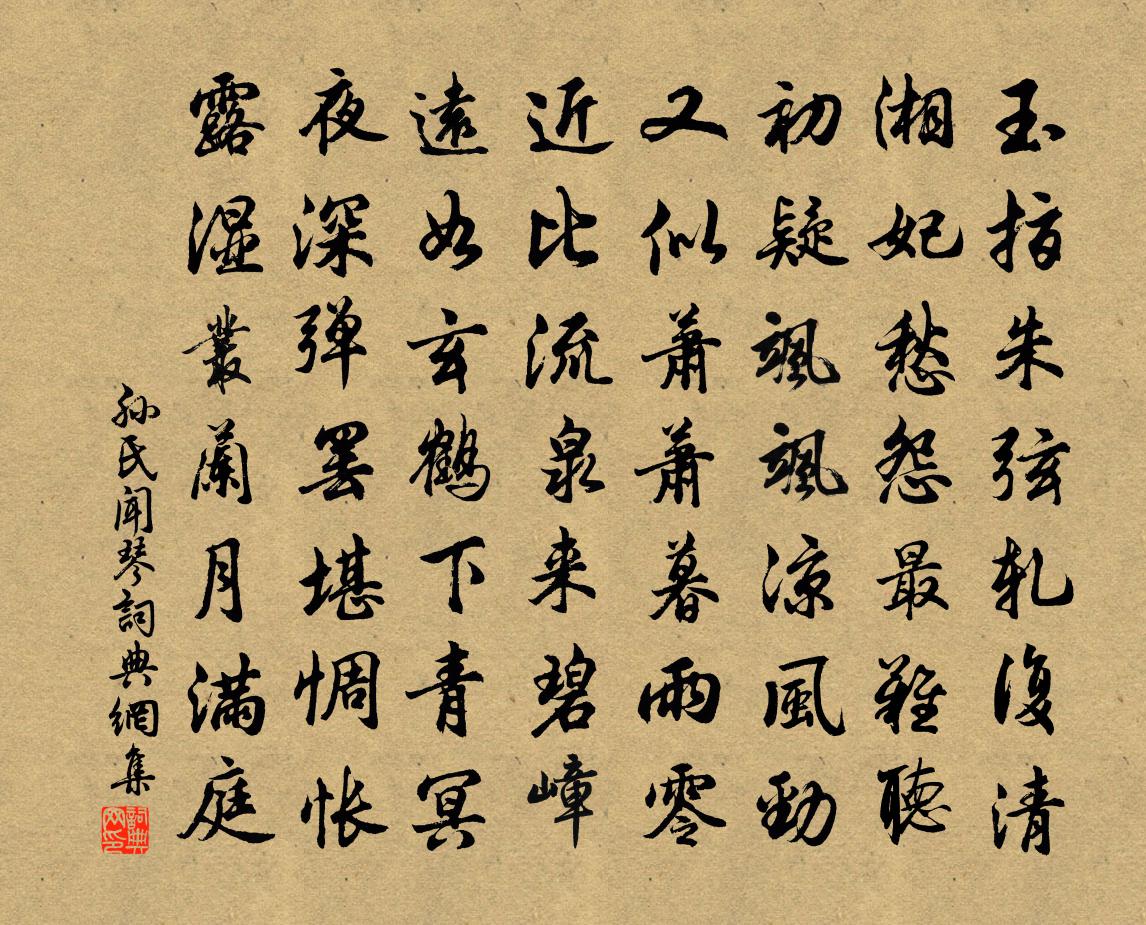 玉指朱弦軋復清
湘妃愁怨最難聽
初疑颯颯涼風勁
又似蕭蕭暮雨零
近比流泉来碧嶂
遠如玄鶴下青冥
夜深弹罢堪惆怅
露濕叢蘭月滿庭
孙氏闻琴詞典網集
詞典網印